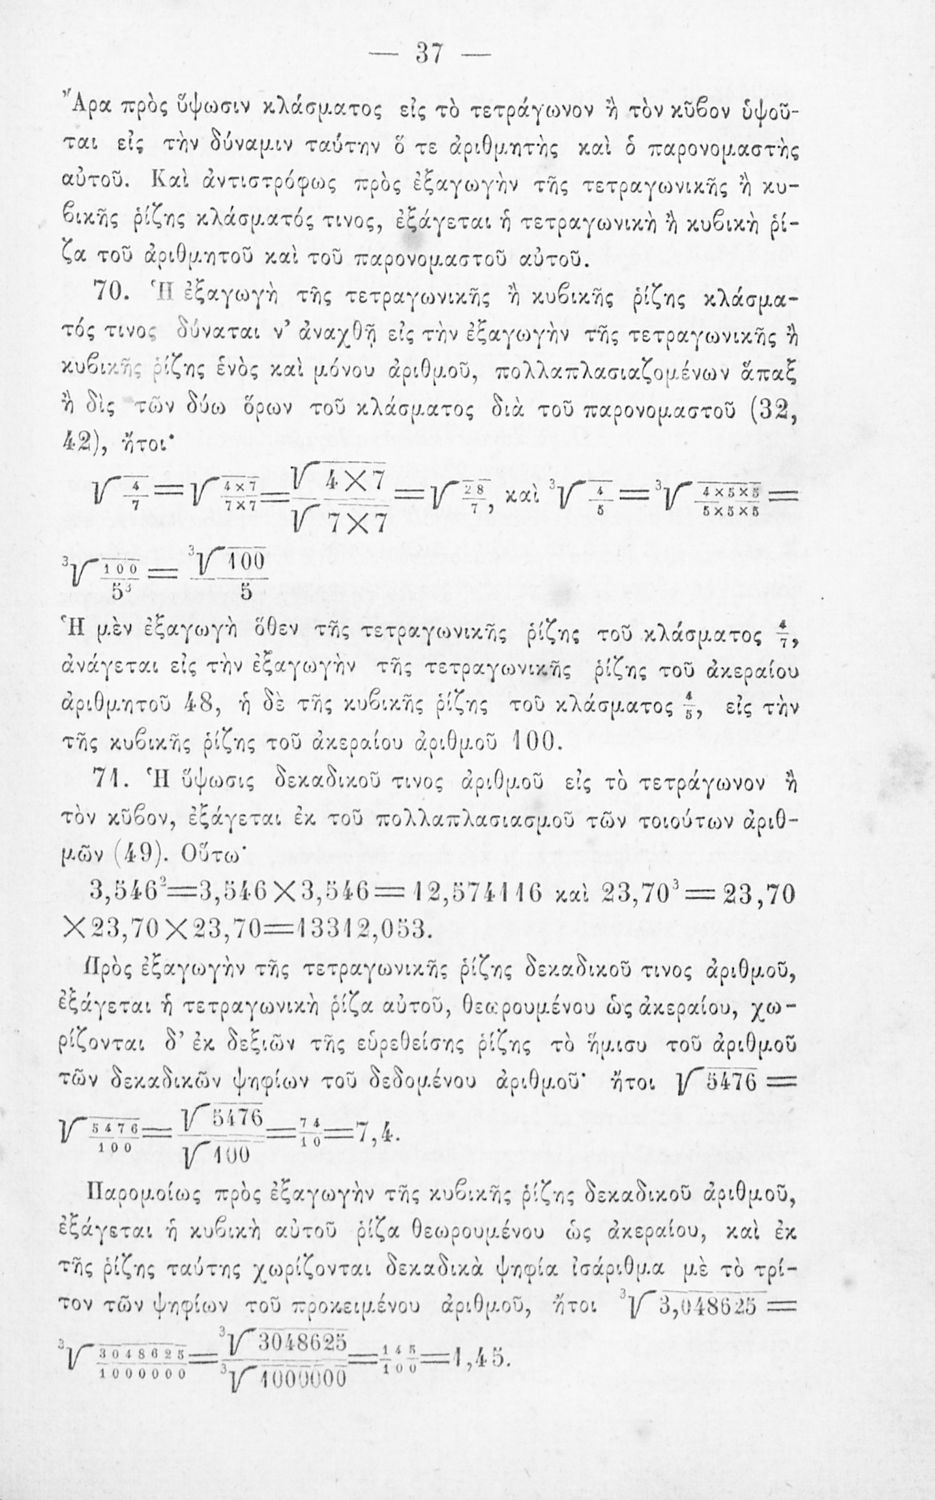 — 37 —
Ἄρα πρὸς ὕψωσιν κλάσματος εἰς τὸ τετράγωνον ἢ τὸν κῦβον ὑψοῦ-
ται εἰς τὴν δύναμιν ταύτην ὅ τε ἀριθμητὴς καὶ ὁ παρονομαστὴς
αὐτοῦ. Καὶ ἀντιστρόφως πρὸς ἐξαγωγὴν τῆς τετραγωνικῆς ἢ κυ-
βικῆς ῥίζης κλάσματός τινος, ἐξάγεται ἡ τετραγωνικὴ ἢ κυβικὴ ῥί-
ζα τοῦ ἀριθμητοῦ καὶ τοῦ παρονομαστοῦ αὐτοῦ.
70. Ἡ ἐξαγωγὴ τῆς τετραγωνικῆς ἢ κυβικῆς ῥίζης κλάσμα-
τός τινος δύναται ν' ἀναχθῇ εἰς τὴν ἐξαγωγὴν τῆς τετραγωνικῆς ἢ
κυβικῆς ῥίζης ἑνὸς καὶ μόνου ἀριθμοῦ, πολλαπλασιαζομένων ἅπαξ
ἢ δὶς τῶν δύω ὅρων τοῦ κλάσματος διὰ τοῦ παρονομαστοῦ (32,
42), ἤτοι·
√4/7 = √4×7/7×7 = √4×7/√7×7 = √28/7, καὶ ³√4/5 = ³√4×5×5/5×5×5 =
³√100/5³ = ³√100/5
Ἡ μὲν ἐξαγωγὴ ὅθεν τῆς τετραγωνικῆς ῥίζης τοῦ κλάσματος 4/7,
ἀνάγεται εἰς τὴν ἐξαγωγὴν τῆς τετραγωνικῆς ῥίζης τοῦ ἀκεραίου
ἀριθμητοῦ 48, ἡ δὲ τῆς κυβικῆς ῥίζης τοῦ κλάσματος 4/5, εἰς τὴν
τῆς κυβικῆς ῥίζης τοῦ ἀκεραίου ἀριθμοῦ 100.
71. Ἡ ὕψωσις δεκαδικοῦ τινος ἀριθμοῦ εἰς τὸ τετράγωνον ἢ
τὸν κῦβον, ἐξάγεται ἐκ τοῦ πολλαπλασιασμοῦ τῶν τοιούτων ἀριθ-
μῶν (49). Οὕτω·
3,546²=3,546×3,546=12,574116 καὶ 23,70³=23,70
×23,70×23,70=13312,053.
Πρὸς ἐξαγωγὴν τῆς τετραγωνικῆς ῥίζης δεκαδικοῦ τινος ἀριθμοῦ,
ἐξάγεται ἡ τετραγωνικὴ ῥίζα αὐτοῦ, θεωρουμένου ὡς ἀκεραίου, χω-
ρίζονται δ' ἐκ δεξιῶν τῆς εὑρεθείσης ῥίζης τὸ ἥμισυ τοῦ ἀριθμοῦ
τῶν δεκαδικῶν ψηφίων τοῦ δεδομένου ἀριθμοῦ· ἤτοι √5476 =
√5476/100 = √5476/√100 = 74/10 = 7,4.
Παρομοίως πρὸς ἐξαγωγὴν τῆς κυβικῆς ῥίζης δεκαδικοῦ ἀριθμοῦ,
ἐξάγεται ἡ κυβικὴ αὐτοῦ ῥίζα θεωρουμένου ὡς ἀκεραίου, καὶ ἐκ
τῆς ῥίζης ταύτης χωρίζονται δεκαδικὰ ψηφία ἰσάριθμα μὲ τὸ τρί-
τον τῶν ψηφίων τοῦ προκειμένου ἀριθμοῦ, ἤτοι ³√3,048625 =
³√3048625/1000000 = ³√3048625/³√1000000 = 145/100 = 1,45.